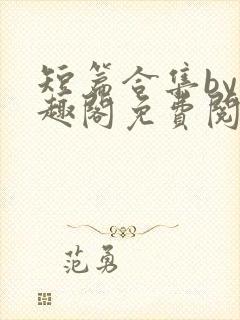 短篇合集by
趣阁免费阅
范勇